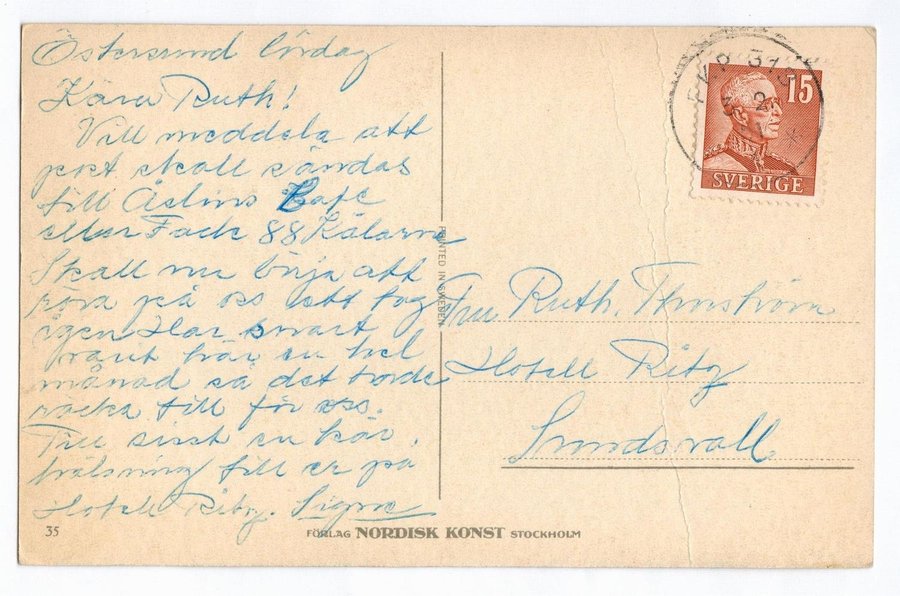 Östersund lördag
Kära Ruth!
Vill meddela att
post skall sändas
till Åslins Café
eller Fack 88 Kälarne
Skall nu börja att
röra på oss ett tag
igen Har snart
varit här en hel
månad så det borde
räcka till för oss.
Till sist en kär
hälsning till er på
Hotell Ritz. Signe
35
PRINTED IN SWEDEN
FÖRLAG NORDISK KONST STOCKHOLM
15
SVERIGE
PKP 313
2
Fru Ruth. Thunström
Hotell Ritz
Sundsvall